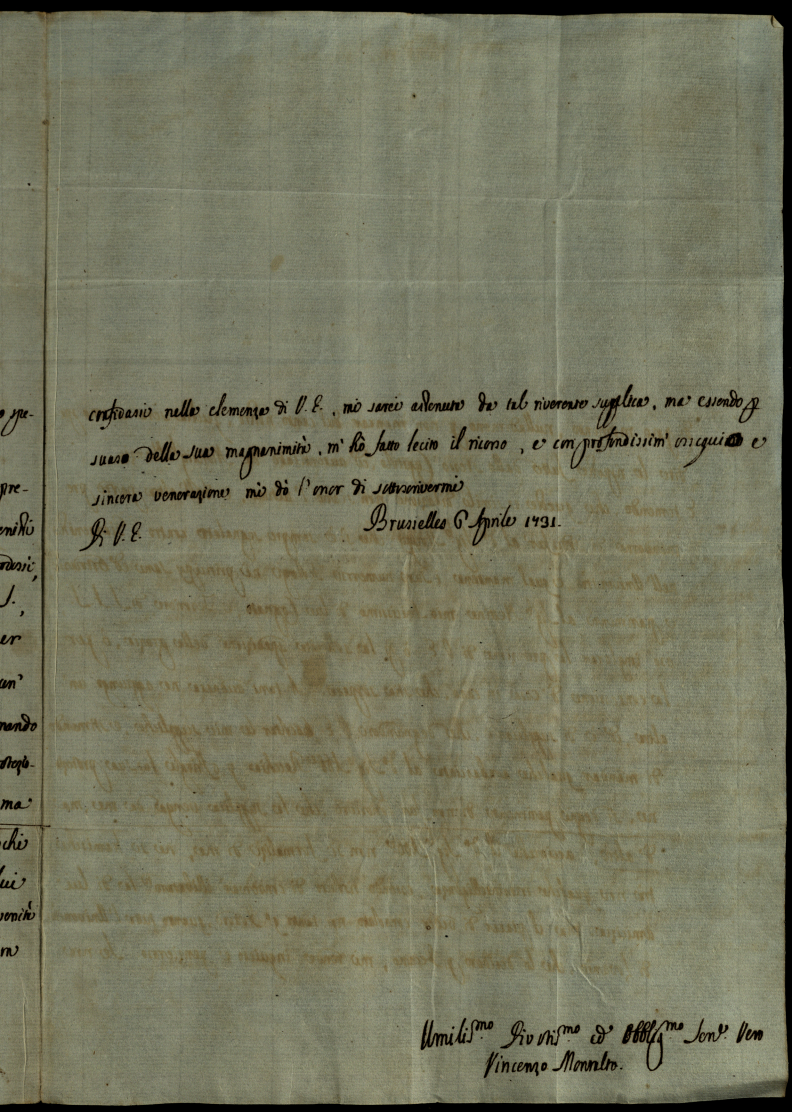 spe-
pre-
eniti
J.
er
un'
nando
ma
chi
lui
venità
confidasse nella clemenza di V. E., mi sarei astenuto da tal riverente supplica, ma essendo p
suaso della sua magnanimità, m' hò fatto lecito il ricorso, e con profondissim' ossequio e
sincera venerazione mi dò l'onor di sottoscrivermi
Di V. E. Brusselles 6 Aprile 1731.
Umilis.mo Divotis.mo ed Obblig.mo Serv.e Vero
Vincenzo Monralto.